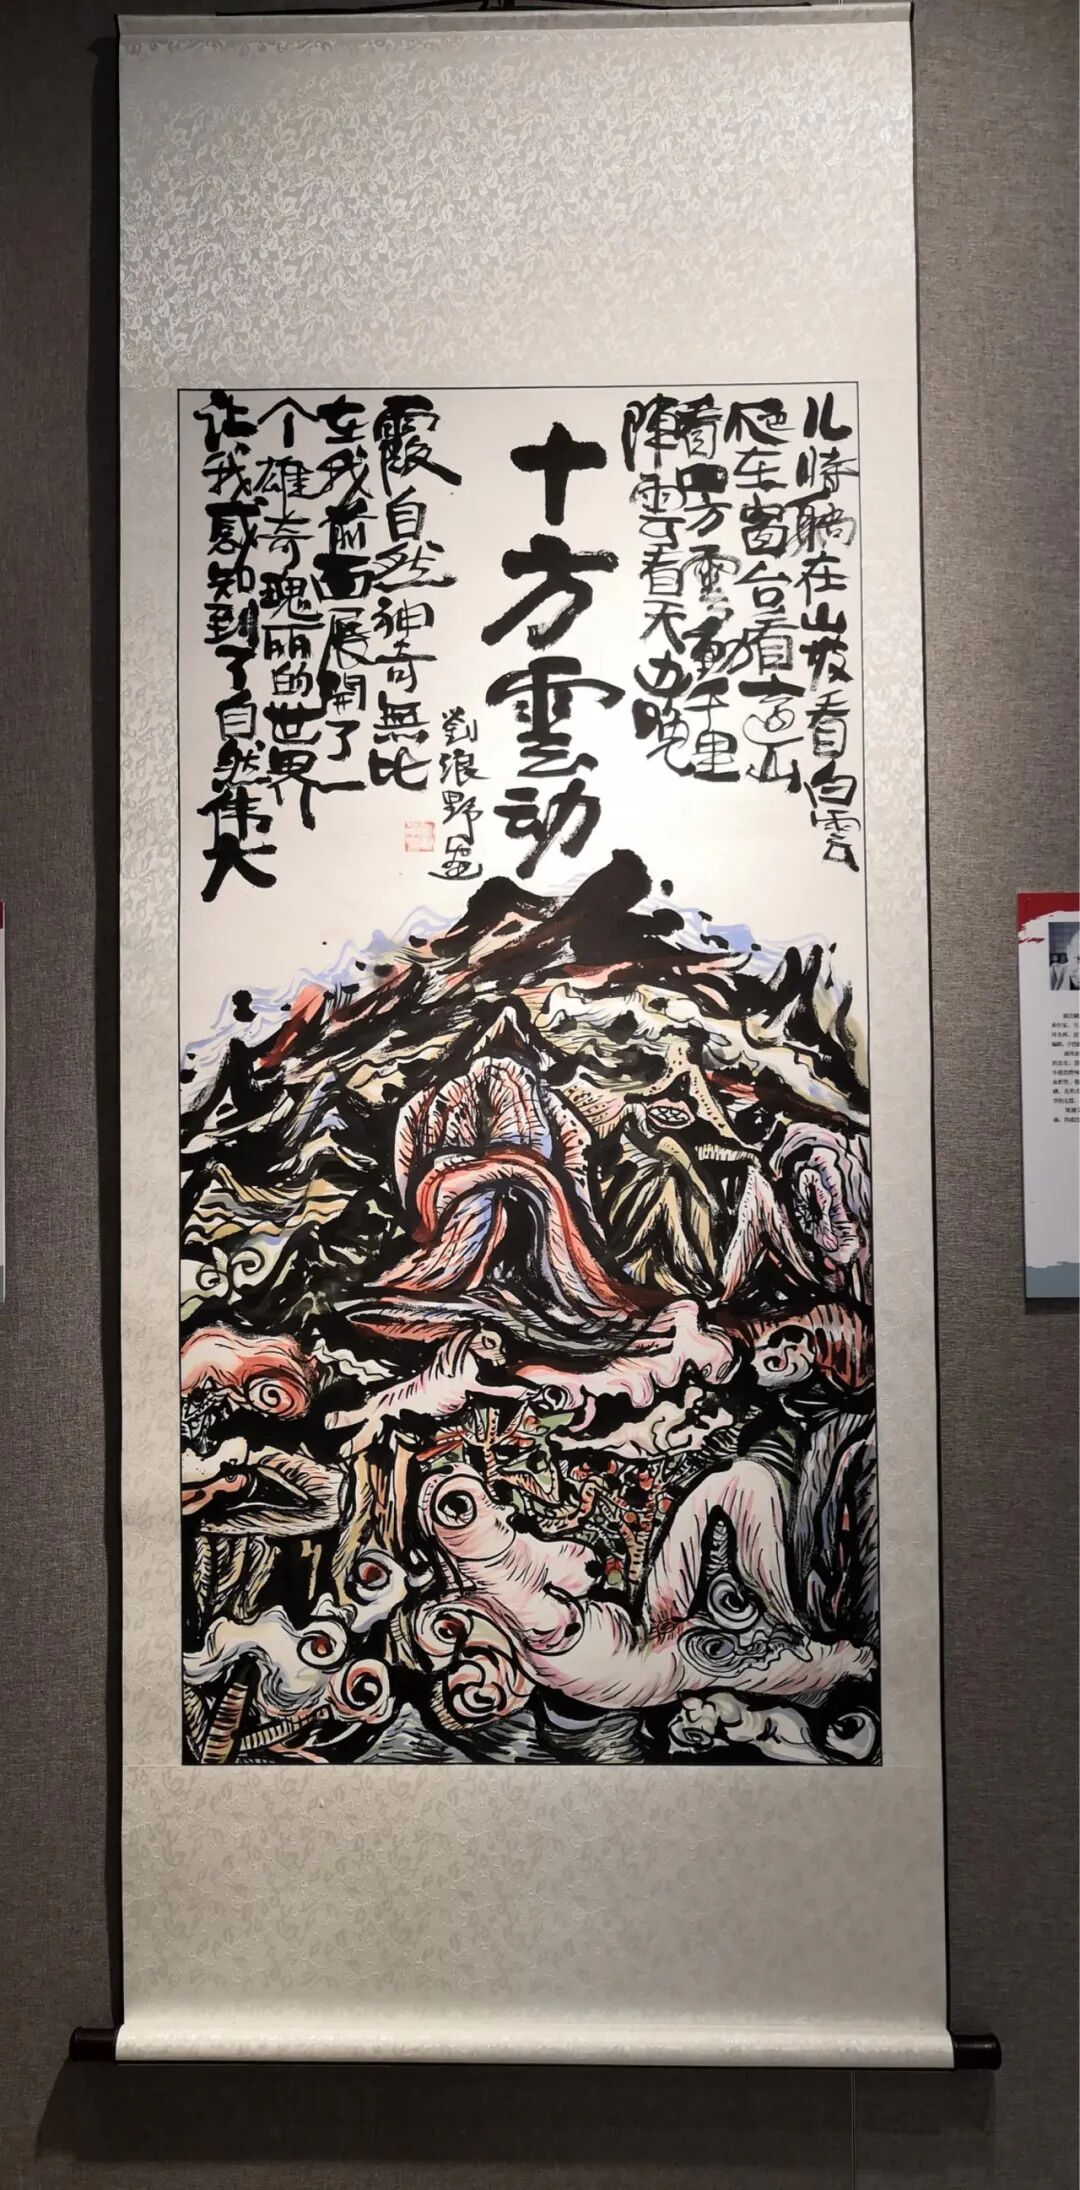 儿时躺在山坡看白雲
爬在窗台看高山
看四方雲動千里
陣雲看天边晚
十方雲动
霞自然神奇無比
在我前面展開了一
个雄奇瑰丽的世界
让我感知到了自然伟大
劉浪野画